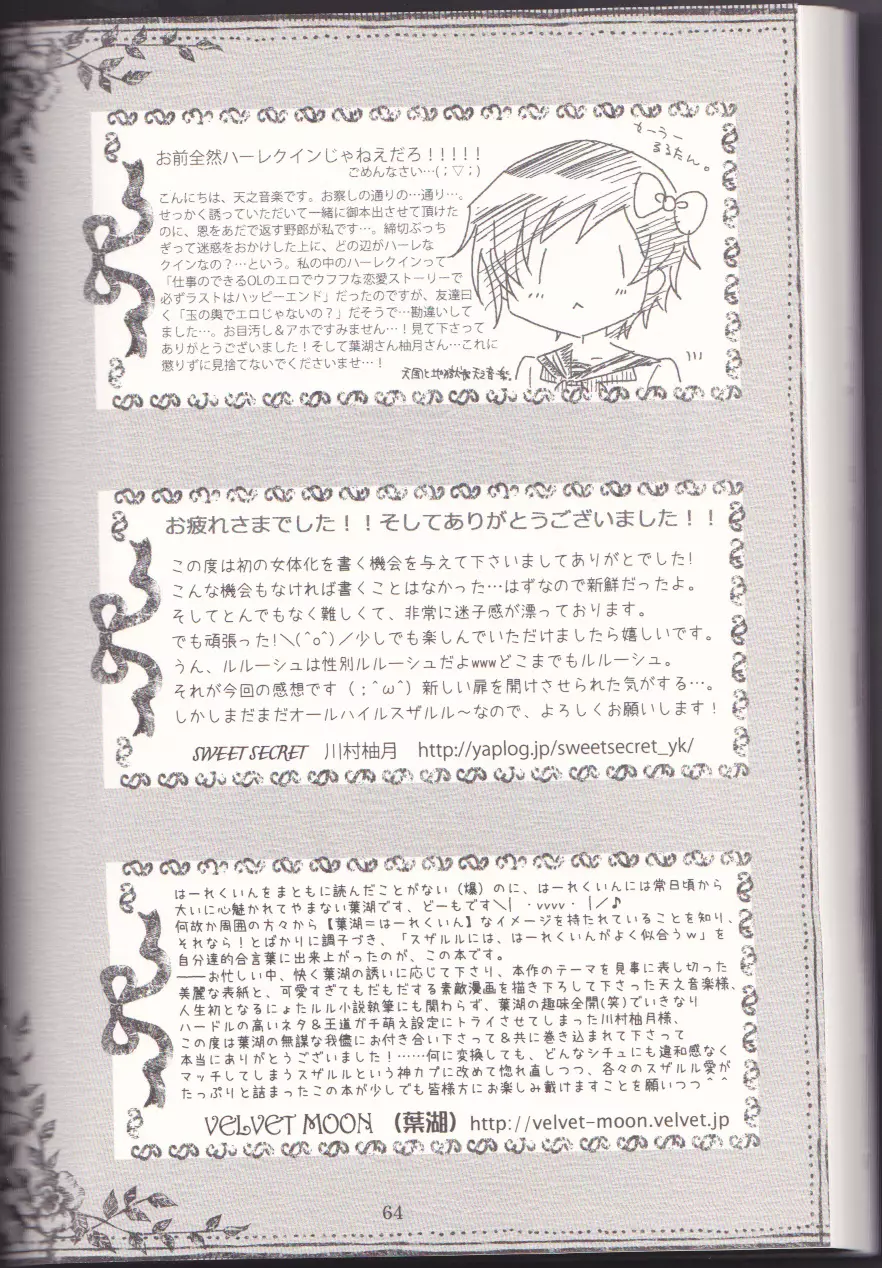 お前全然ハーレクインじゃねえだろ！！！！！
ごめんなさい…(；▽；)
こんにちは、天之音楽です。お察しの通りの…通り…。
せっかく誘っていただいて一緒に御本出させて頂けた
のに、恩をあだで返す野郎が私です…。締切ぶっち
ぎって迷惑をおかけした上に、どの辺がハーレな
クインなの？…という。私の中のハーレクインって
「仕事のできるOLのエロでウフフな恋愛ストーリーで
必ずラストはハッピーエンド」だったのですが、友達曰
く「玉の輿でエロじゃないの？」だそうで…勘違いして
ました…。お目汚し＆アホですみません…！見て下さって
ありがとうございました！そして葉湖さん柚月さん…これに
懲りずに見捨てないでくださいませ…！
天国と地獄 天之音楽
るるたん。
お疲れさまでした！！そしてありがとうございました！！
この度は初の女体化を書く機会を与えて下さいましてありがとでした!
こんな機会もなければ書くことはなかった…はずなので新鮮だったよ。
そしてとんでもなく難しくて、非常に迷子感が漂っております。
でも頑張った!＼(^o^)／少しでも楽しんでいただけましたら嬉しいです。
うん、ルルーシュは性別ルルーシュだよwwwどこまでもルルーシュ。
それが今回の感想です（；^ω^）新しい扉を開けさせられた気がする…。
しかしまだまだオールハイルスザルル～なので、よろしくお願いします！
SWEET SECRET 川村柚月 http://yaplog.jp/sweetsecret_yk/
はーれくいんをまともに読んだことがない（爆）のに、はーれくいんには常日頃から
大いに心魅かれてやまない葉湖です、どーもです＼|　・vvvv・　|／♪
何故か周囲の方々から【葉湖＝はーれくいん】なイメージを持たれていることを知り、
それなら！とばかりに調子づき、「スザルルには、はーれくいんがよく似合うｗ」を
自分達的合言葉に出来上がったのが、この本です。
――お忙しい中、快く葉湖の誘いに応じて下さり、本作のテーマを見事に表し切った
美麗な表紙と、可愛すぎてもだもだする素敵漫画を描き下ろして下さった天之音楽様、
人生初となるにょたルル小説執筆にも関わらず、葉湖の趣味全開(笑)でいきなり
ハードルの高いネタ＆王道ガチ萌え設定にトライさせてしまった川村柚月様、
この度は葉湖の無謀な我儘にお付き合い下さって＆共に巻き込まれて下さって
本当にありがとうございました！……何に変換しても、どんなシチュにも違和感なく
マッチしてしまうスザルルという神カプに改めて惚れ直しつつ、各々のスザルル愛が
たっぷりと詰まったこの本が少しでも皆様方にお楽しみ戴けますことを願いつつ＾＾
VELVET MOON （葉湖）http://velvet-moon.velvet.jp
64